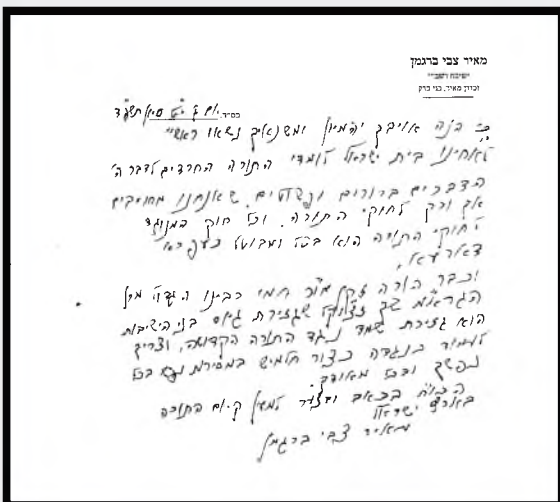 מאיר צבי ברגמן
ישיבת רשב"י
זכרון מאיר, בני ברק
בס"ד, יום ג' י"ט סיון תשע"ד
כי הנה אויביך יהמיון ומשנאיך נשאו ראש
לאחינו בית ישראל לומדי התורה החרדים לדבר ה'
הדברים ברורים ופשוטים, שאנחנו מחויבים
אך ורק לחוקי התורה. וכל חוק במנוגד
לחוקי התורה הוא בטל ומבוטל כעפרא
דארעא.
וכבר הורה זקן מו"ר חמי רבינו הגדול מרן
הגראמ"ש שך זצוק"ל שגזירת גיוס בני הישיבות
הוא גזירת שמד נגד התורה הקדושה, וצריך
לעמוד כנגדה כצור חלמיש במסירות נפש בכל
נפשך ובכל מאודך
הכו"ח בכאב ובצער למען קיום התורה
בארץ ישראל
מאיר צבי ברגמן